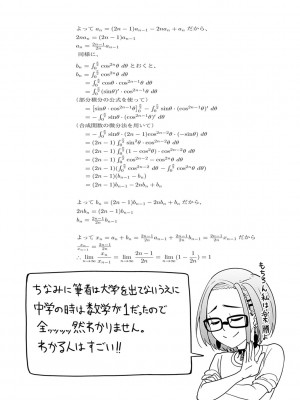 よって aₙ = (2n − 1)aₙ₋₁ − 2naₙ + aₙ だから、
2naₙ = (2n − 1)aₙ₋₁
aₙ = (2n−1)/2n aₙ₋₁
同様に、
bₙ = ∫₀^(π/2) cos²ⁿθ dθ とおくと、
bₙ = ∫₀^(π/2) cos²ⁿθ dθ
= ∫₀^(π/2) cosθ · cos²ⁿ⁻¹θ dθ
= ∫₀^(π/2) (sinθ)′ · cos²ⁿ⁻¹θ dθ
(部分積分の公式を使って)
= [sinθ · cos²ⁿ⁻¹θ]₀^(π/2) − ∫₀^(π/2) sinθ · (cos²ⁿ⁻¹θ)′ dθ
= − ∫₀^(π/2) sinθ · (cos²ⁿ⁻¹θ)′ dθ
(合成関数の微分法を用いて)
= − ∫₀^(π/2) sinθ · (2n − 1)cos²ⁿ⁻²θ · (−sinθ) dθ
= (2n − 1) ∫₀^(π/2) sin²θ · cos²ⁿ⁻²θ dθ
= (2n − 1) ∫₀^(π/2) (1 − cos²θ) · cos²ⁿ⁻²θ dθ
= (2n − 1) ∫₀^(π/2) cos²ⁿ⁻² − cos²ⁿθ dθ
= (2n − 1)(∫₀^(π/2) cos²ⁿ⁻²θ dθ − ∫₀^(π/2) cos²ⁿθ dθ)
= (2n − 1)(bₙ₋₁ − bₙ)
= (2n − 1)bₙ₋₁ − 2nbₙ + bₙ
よって bₙ = (2n − 1)bₙ₋₁ − 2nbₙ + bₙ だから、
2nbₙ = (2n − 1)bₙ₋₁
bₙ = (2n−1)/2n bₙ₋₁
よって xₙ = aₙ + bₙ = (2n−1)/2n aₙ₋₁ + (2n−1)/2n bₙ₋₁ = (2n−1)/2n xₙ₋₁ だから
xₙ/xₙ₋₁ = (2n−1)/2n
∴ lim(n→∞) xₙ/xₙ₋₁ = lim(n→∞) (2n−1)/2n = lim(n→∞) (1 − 1/2n) = 1
もちろん私は楽勝よ
ちなみに筆者は大学を出てないうえに
中学の時は数学が1だったので
全ッッッッ然わかりません。
わかる人はすごい!!